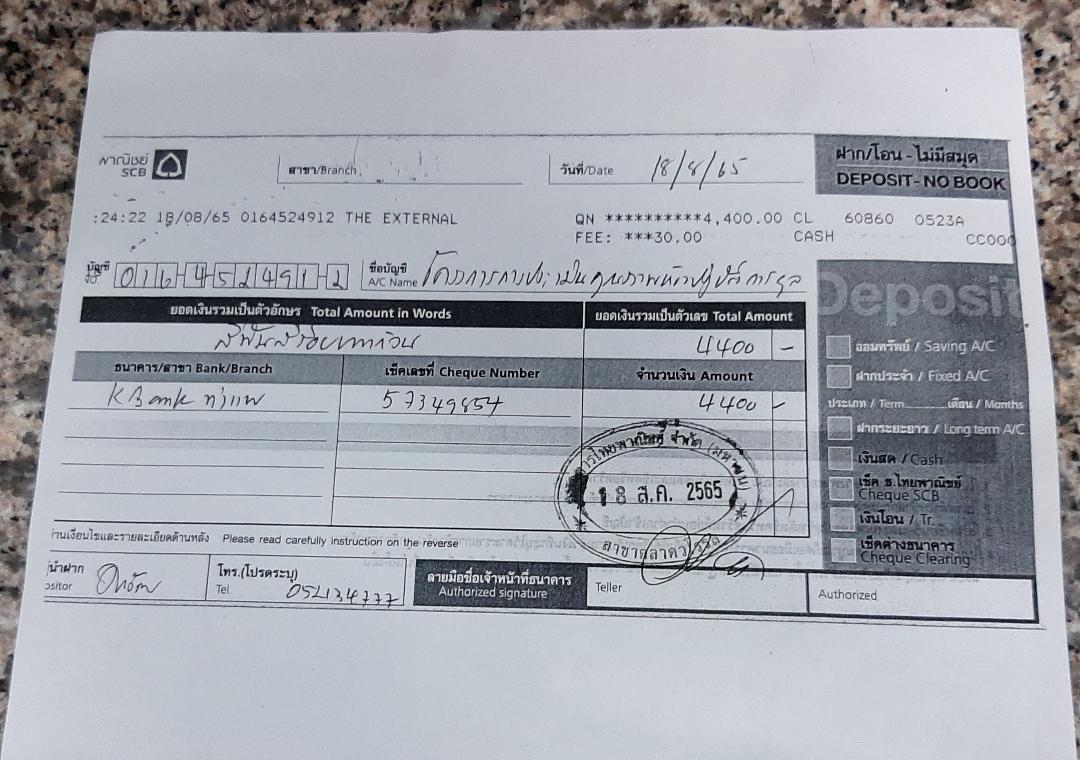 พาณิชย์
SCB
สาขา/Branch
วันที่/Date 18/8/65
ฝาก/โอน - ไม่มีสมุด
DEPOSIT- NO BOOK
:24:22 18/08/65 0164524912 THE EXTERNAL QN **********4,400.00 CL 60860 0523A
FEE: ***30.00 CASH CC000
บัญชี 016-4-52491-2
ชื่อบัญชี โครงการการประเมินคุณภาพห้องปฏิบัติการ
A/C Name
Deposit
ยอดเงินรวมเป็นตัวอักษร Total Amount in Words ยอดเงินรวมเป็นตัวเลข Total Amount
สี่พันสี่ร้อยบาทถ้วน 4400 -
ธนาคาร/สาขา Bank/Branch เช็คเลขที่ Cheque Number จำนวนเงิน Amount
KBank ท่าแพ 57349854 4400 -
ออมทรัพย์ / Saving A/C
ฝากประจำ / Fixed A/C
ประเภท / Term เดือน / Months
ฝากระยะยาว / Long term A/C
เงินสด / Cash
เช็ค ธ.ไทยพาณิชย์
Cheque SCB
เงินโอน / Tr.
เช็คต่างธนาคาร
Cheque Clearing
ธนาคารไทยพาณิชย์ จำกัด (มหาชน)
18 ส.ค. 2565
านเงื่อนไขและรายละเอียดด้านหลัง Please read carefully instruction on the reverse
ผู้นำฝาก
ositor
โทร.(โปรดระบุ)
Tel. 052134777
ลายมือชื่อเจ้าหน้าที่ธนาคาร
Authorized signature
Teller
Authorized